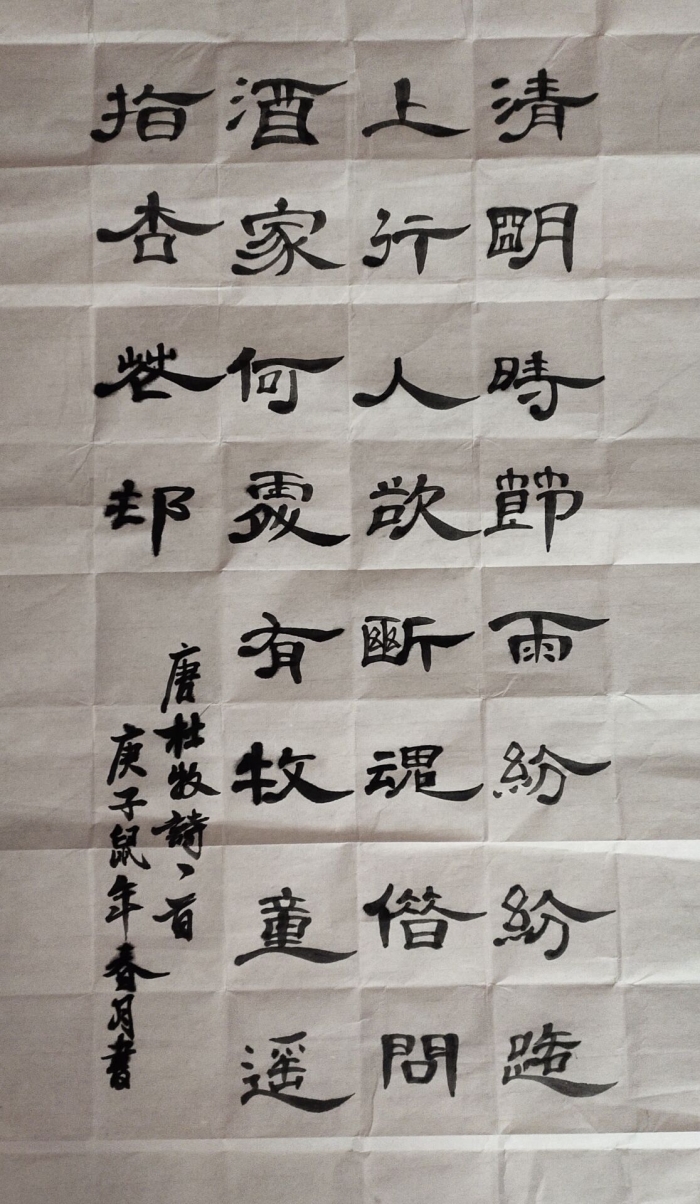 清明時節雨紛紛路
上行人欲斷魂借問
酒家何處有牧童遥
指杏花邨
唐杜牧詩一首
庚子鼠年春月書